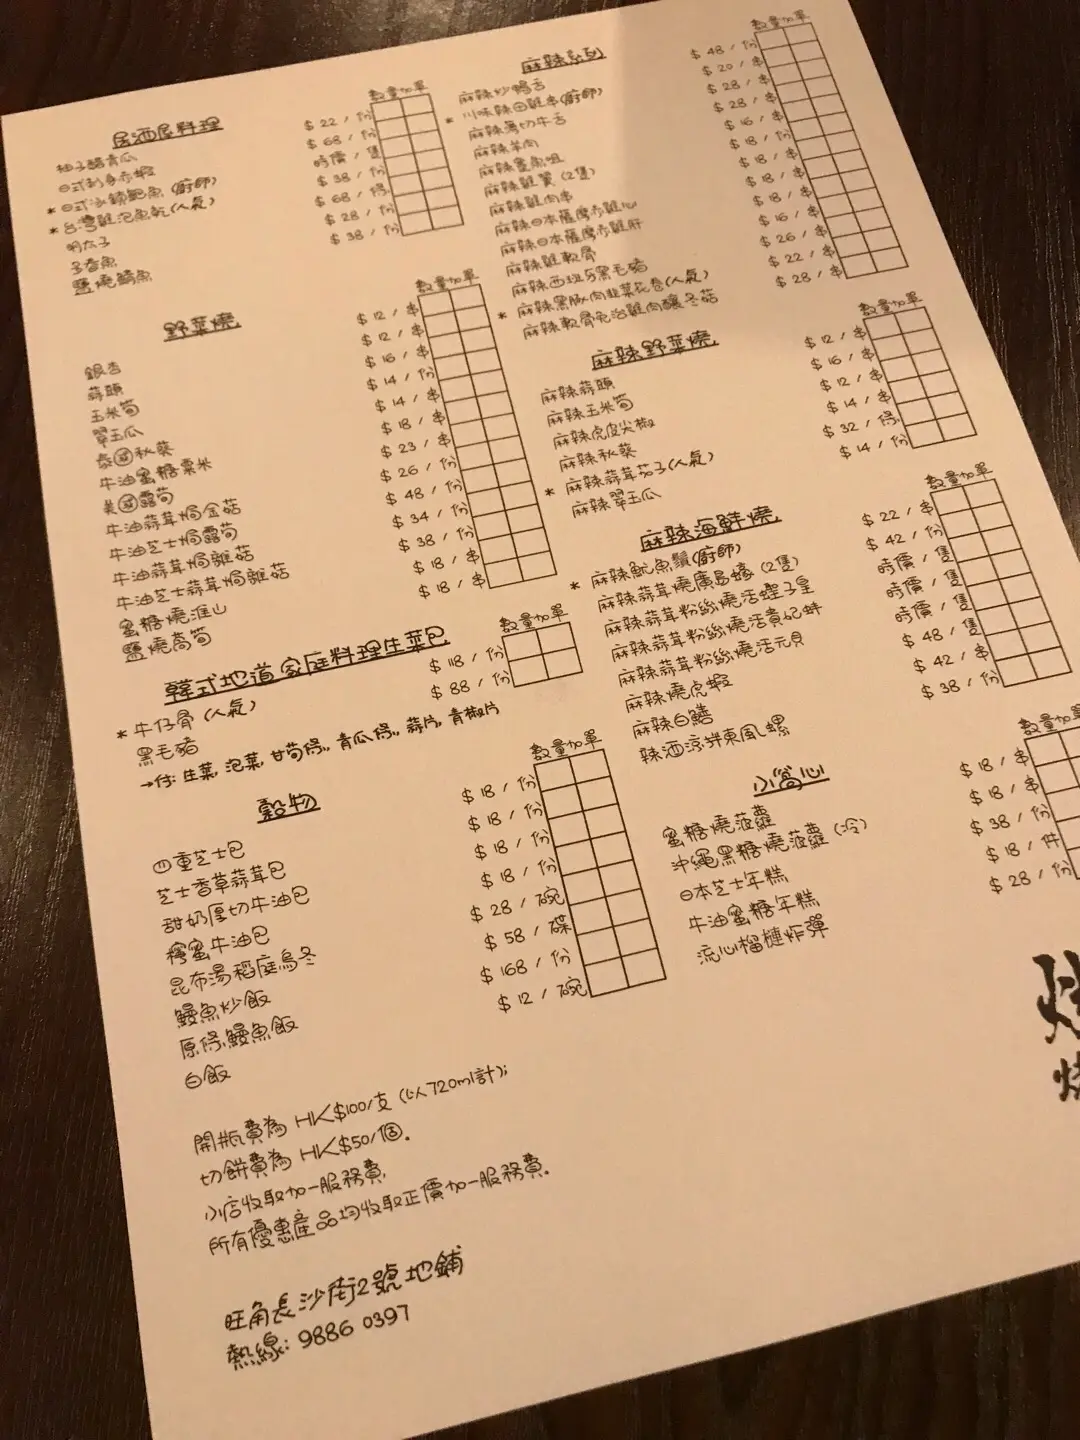 居酒屋料理
數量 加單
柚子醋青瓜 $22 / 份
日式刺身赤蝦 $68 / 份
* 日式冰鎮鮑魚 (廚師) 時價 / 隻
* 台灣雞泡魚乾 (人氣) $38 / 份
明太子 $68 / 條
多春魚 $28 / 份
鹽燒鯖魚 $38 / 份
野菜燒
數量 加單
銀杏 $12 / 串
蒜頭 $12 / 串
玉米筍 $16 / 串
翠玉瓜 $14 / 份
泰國秋葵 $14 / 串
牛油蜜糖粟米 $18 / 串
美國露筍 $23 / 串
牛油蒜茸焗金菇 $26 / 份
牛油芝士焗露筍 $48 / 份
牛油蒜茸焗雜菇 $34 / 份
牛油芝士蒜茸焗雜菇 $38 / 份
蜜糖燒淮山 $18 / 串
鹽燒萵筍 $18 / 串
韓式地道家庭料理生菜包
數量 加單
* 牛仔骨 (人氣) $118 / 份
黑毛豬 $88 / 份
→付: 生菜, 泡菜, 甘筍條, 青瓜條, 蒜片, 青椒片
穀物
數量 加單
四重芝士包 $18 / 份
芝士香草蒜茸包 $18 / 份
甜奶厚切牛油包 $18 / 份
檸蜜牛油包 $18 / 份
昆布湯稻庭烏冬 $28 / 碗
鰻魚炒飯 $58 / 碟
原條鰻魚飯 $168 / 份
白飯 $12 / 碗
開瓶費為 HK$100/支 (以720ml計);
切餅費為 HK$50/個.
小店收取加一服務費,
所有優惠產品均收取正價加一服務費.
旺角長沙街2號地鋪
熱線: 9886 0397
麻辣系列
數量 加單
麻辣炒鴨舌 $48 / 份
* 川味辣田雞串 (廚師) $20 / 串
麻辣薄切牛舌 $28 / 串
麻辣羊肉 $28 / 串
麻辣墨魚咀 $16 / 串
麻辣雞翼 (2隻) $18 / 份
麻辣雞肉串 $18 / 串
麻辣日本薩摩赤雞心 $18 / 串
麻辣日本薩摩赤雞肝 $18 / 串
麻辣雞軟骨 $16 / 串
麻辣西班牙黑毛豬 $26 / 串
* 麻辣黑豚肉韭菜花卷 (人氣) $22 / 串
麻辣軟骨免治雞肉釀冬菇 $28 / 串
麻辣野菜燒
數量 加單
麻辣蒜頭 $12 / 串
麻辣玉米筍 $16 / 串
麻辣虎皮尖椒 $12 / 串
麻辣秋葵 $14 / 串
* 麻辣蒜茸茄子 (人氣) $32 / 條
麻辣翠玉瓜 $14 / 份
麻辣海鮮燒
數量 加單
* 麻辣魷魚鬚 (廚師) $22 / 串
麻辣蒜茸燒廣島蠔 (2隻) $42 / 份
麻辣蒜茸粉絲燒活蟶子皇 時價 / 隻
麻辣蒜茸粉絲燒活貴妃蚌 時價 / 隻
麻辣蒜茸粉絲燒活元貝 時價 / 隻
麻辣燒虎蝦 $48 / 隻
麻辣白鱔 $42 / 串
辣酒涼拌東風螺 $38 / 份
小窩心
數量 加單
蜜糖燒菠蘿 $18 / 串
沖繩黑糖燒菠蘿 (冷) $18 / 串
日本芝士年糕 $38 / 份
牛油蜜糖年糕 $18 / 件
流心榴槤炸彈 $28 / 份